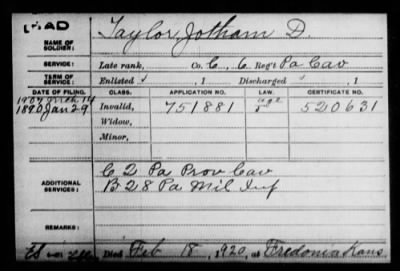 DEAD
NAME OF SOLDIER: Taylor, Jotham D.
SERVICE: Late rank, Co. C, 6 Reg't Pa Cav
TERM OF SERVICE: Enlisted , 1 Discharged , 1
DATE OF FILING. CLASS. APPLICATION NO. LAW. CERTIFICATE NO.
1907 Mch. 14
1890 Jan 29 Invalid, 751881 520631
Widow,
Minor,
ADDITIONAL SERVICES: C 2 Pa Prov Cav
B 28 Pa Mil Inf
REMARKS:
Died Feb 18, 1920, at Fredonia Kans